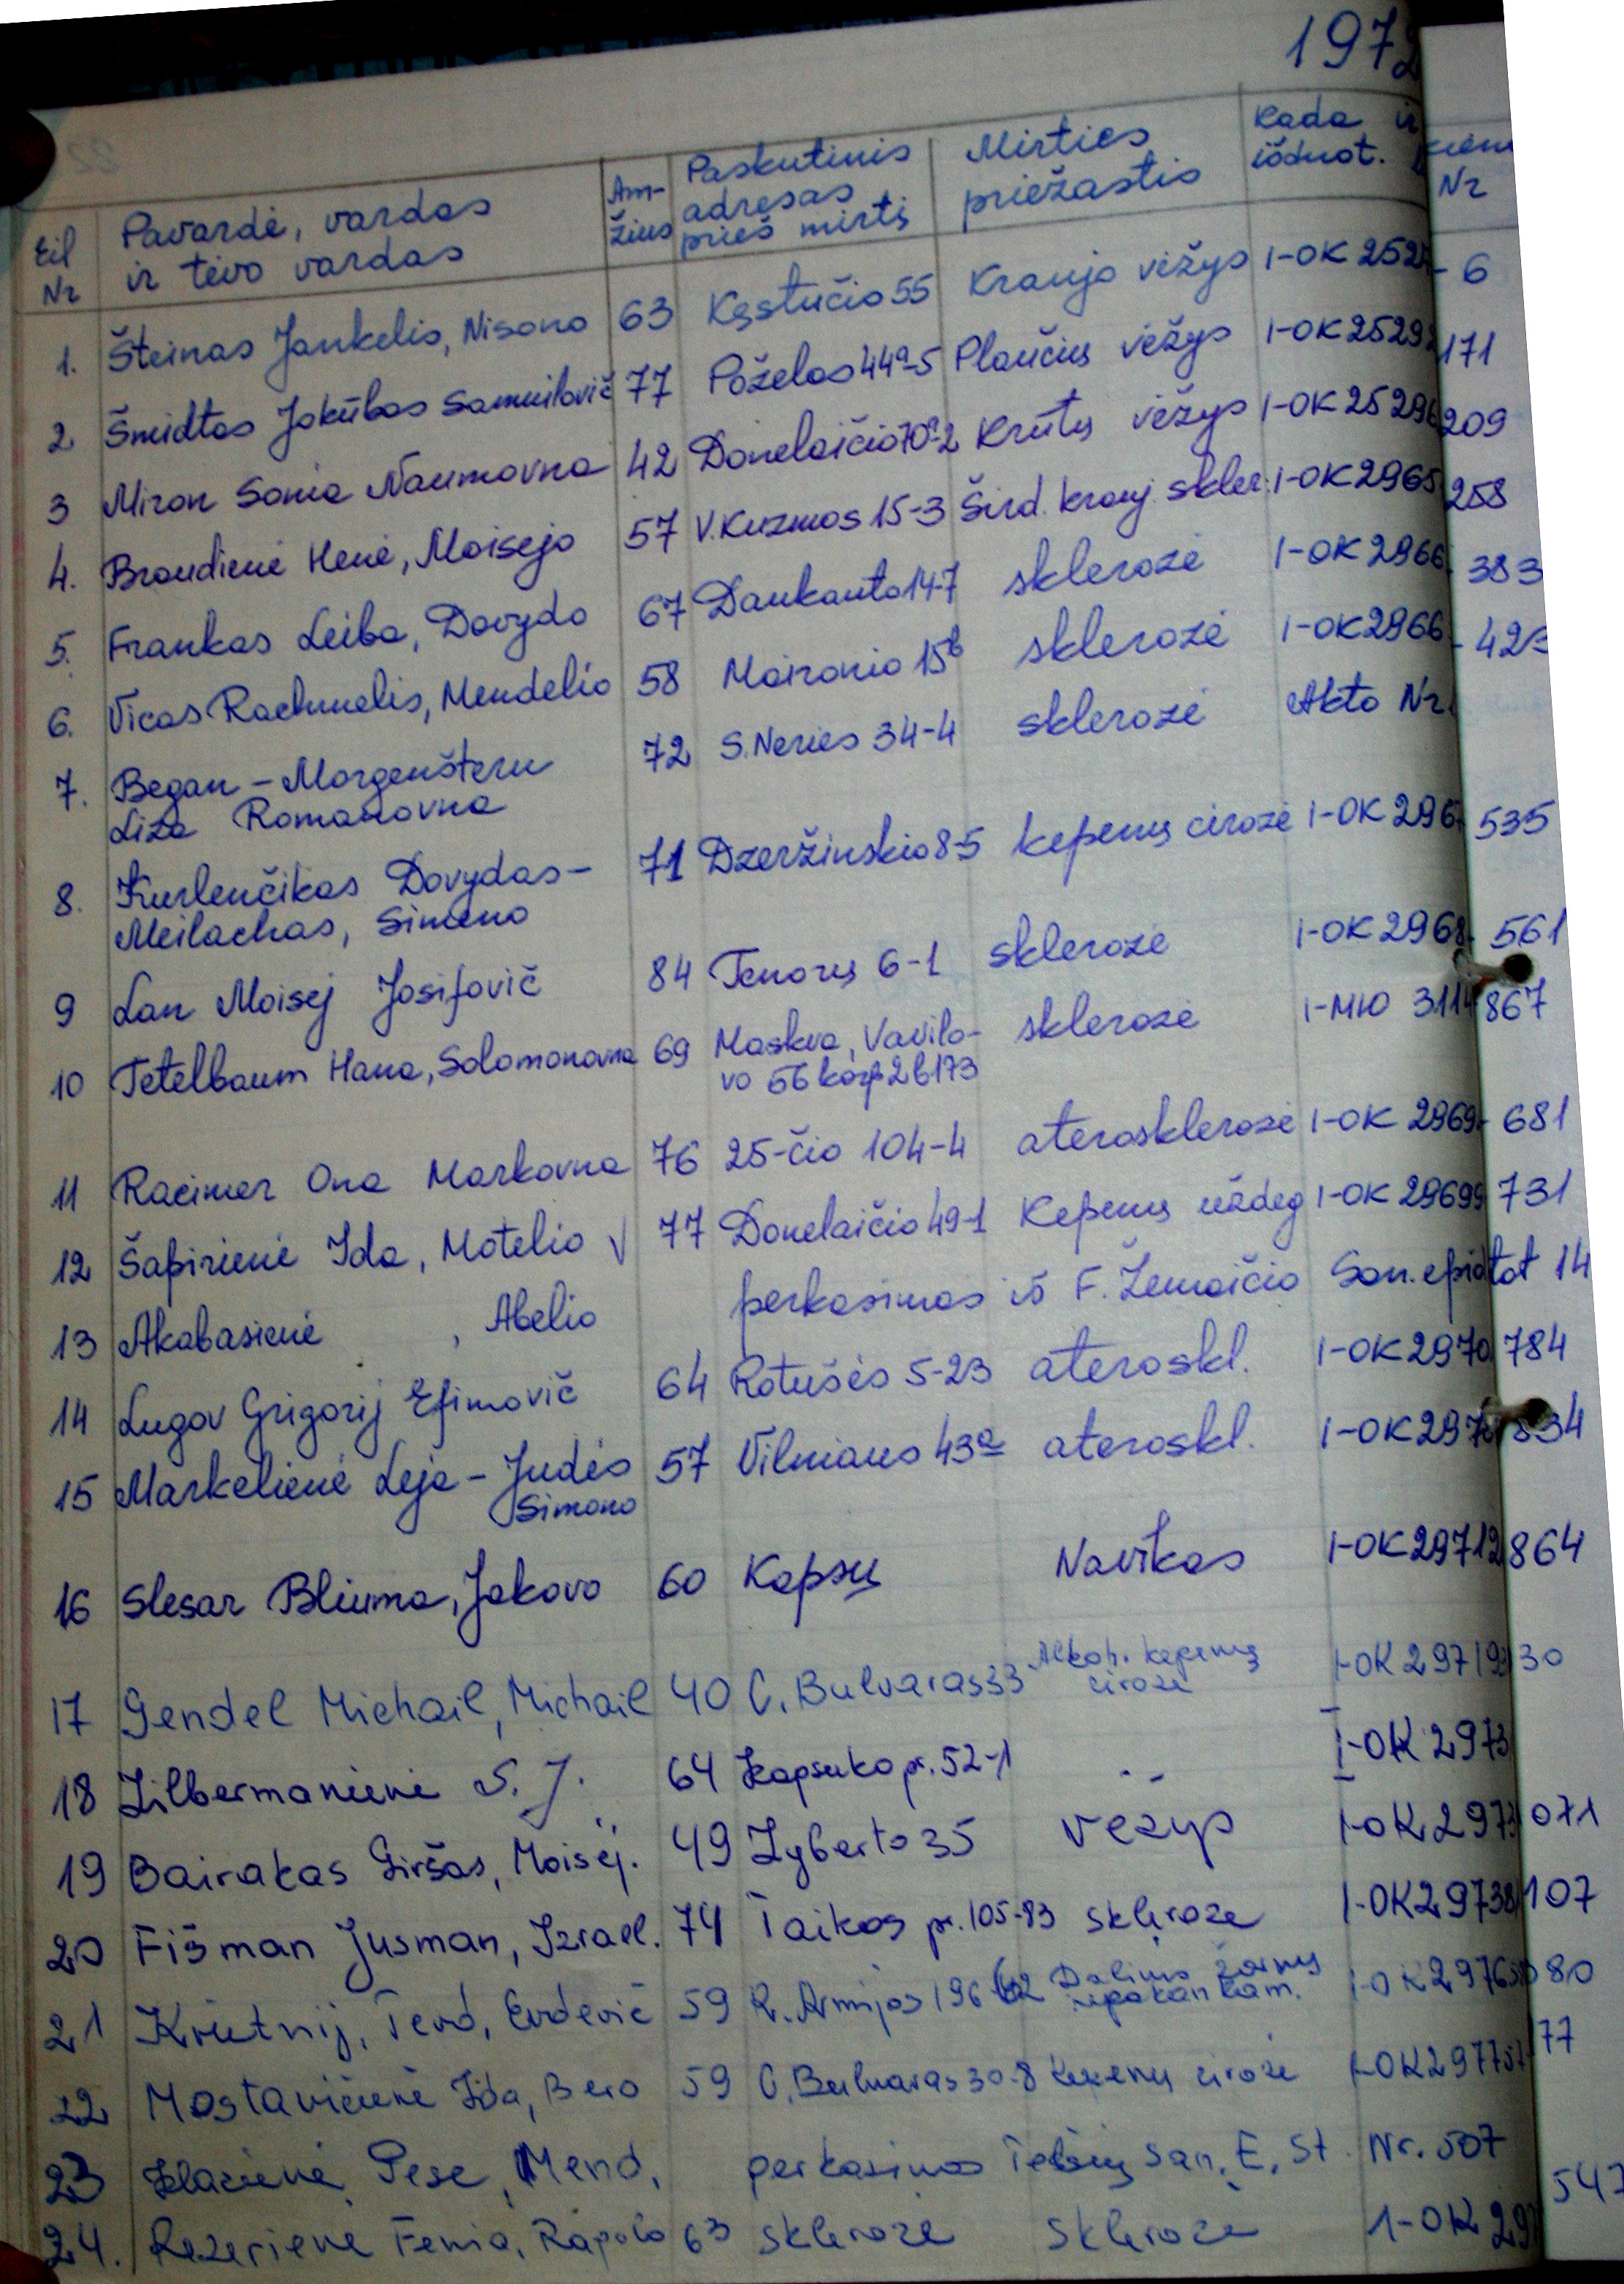 197
Eil Nr
Pavardė, vardas ir tėvo vardas
Amžius
Paskutinis adresas prieš mirtį
Mirties priežastis
Kada ir išduot.
Nr
1. Šteinas Jankelis, Nisono 63 Kęstučio 55 Kraujo vėžys I-OK 252 - 6
2 Šmidtas Jokūbas Samuilovič 77 Požėlos 44a-5 Plaučių vėžys I-OK 2529 171
3 Miron Sonia Naumovna 42 Donelaičio 70a-2 Krūtų vėžys I-OK 25296 209
4. Braudienė Henė, Moisejo 57 V. Kuzmos 15-3 Šird. krauj. skler. I-OK 2965 258
5. Frankas Leiba, Dovydo 67 Daukanto 14-7 sklerozė I-OK 2966 383
6. Vicas Rachmelis, Mendelio 58 Maironio 15b sklerozė I-OK 2966 - 42
7. Began - Morgenštern 72 S. Neries 34-4 sklerozė Akto Nr.
Liza Romanovna
8. Kurlenčikas Dovydas- 71 Dzeržinskio 8-5 kepenų cirozė I-OK 296 535
Meilachas, Simeno
9 Lan Moisej Josifovič 84 Tenorų 6-1 sklerozė I-OK 2968 561
10 Tetelbaum Hana, Solomonovna 69 Maskva, Vavilo- sklerozė I-МЮ 311 867
vo 56 korp 2 b 173
11 Racimer Ona Markovna 76 25-čio 104-4 aterosklerozė I-OK 2969 681
12 Šapirienė Ida, Motelio √ 77 Donelaičio 49-1 Kepenų uždeg I-OK 29699 731
13 Akabasienė , Abelio perkasimas iš F. Žemaičio San. epid 14
14 Lugov Grigorij Efimovič 64 Rotušės 5-23 ateroskl. I-OK 2970 784
15 Markelienė Leja - Judės 57 Vilniaus 43a ateroskl. I-OK 297 834
Simono
16 Slesar Bliuma, Jakovo 60 Kapsų Navikas I-OK 29712 864
17 Gendel Michail, Michail 40 C. Bulvaras 33 Alkoh. kepenų I-OK 29719 30
cirozė
18 Zilbermanienė S. J. 64 Kapsuko pr. 52-1 I-OK 2973
19 Bairakas Giršas, Moisej. 49 Zyberto 35 Vėžys I-OK 297 071
20 Fišman Jusman, Izrael. 74 Taikos pr. 105-83 sklerozė I-OK 29738 107
21 Krutnij, 59 R. Armijos 196 Dalinis I-OK 2976 80
22 Mostavičienė Ida, Bero 59 C. Bulvaras 30-8 kepenų cirozė I-OK 29775 77
23 Pese, Mend, perkasimas Telšių San. E. St. Nr. 507
24. Rezerienė Fenia, Rapolo 63 sklerozė sklerozė 1-OK 29 547